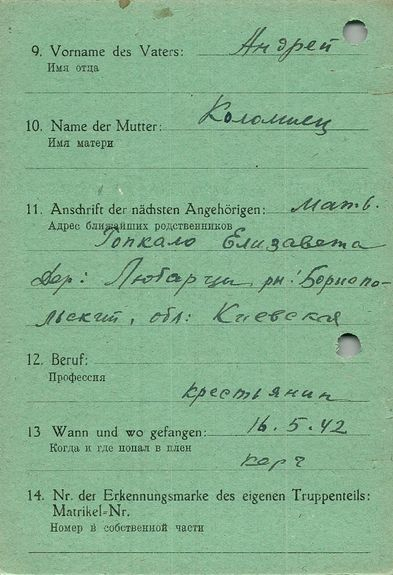 9. Vorname des Vaters: Андрей
Имя отца
10. Name der Mutter: Коломиец
Имя матери
11. Anschrift der nächsten Angehörigen: мать.
Адрес ближайших родственников
Гопкало Елизавета
дер: Любарци рн: Борисо-
льский, обл: Киевская
12. Beruf:
Профессия
крестьянин
13 Wann und wo gefangen: 16.5.42
Когда и где попал в плен
керч
14. Nr. der Erkennungsmarke des eigenen Truppenteils:
Matrikel-Nr.
Номер в собственной части